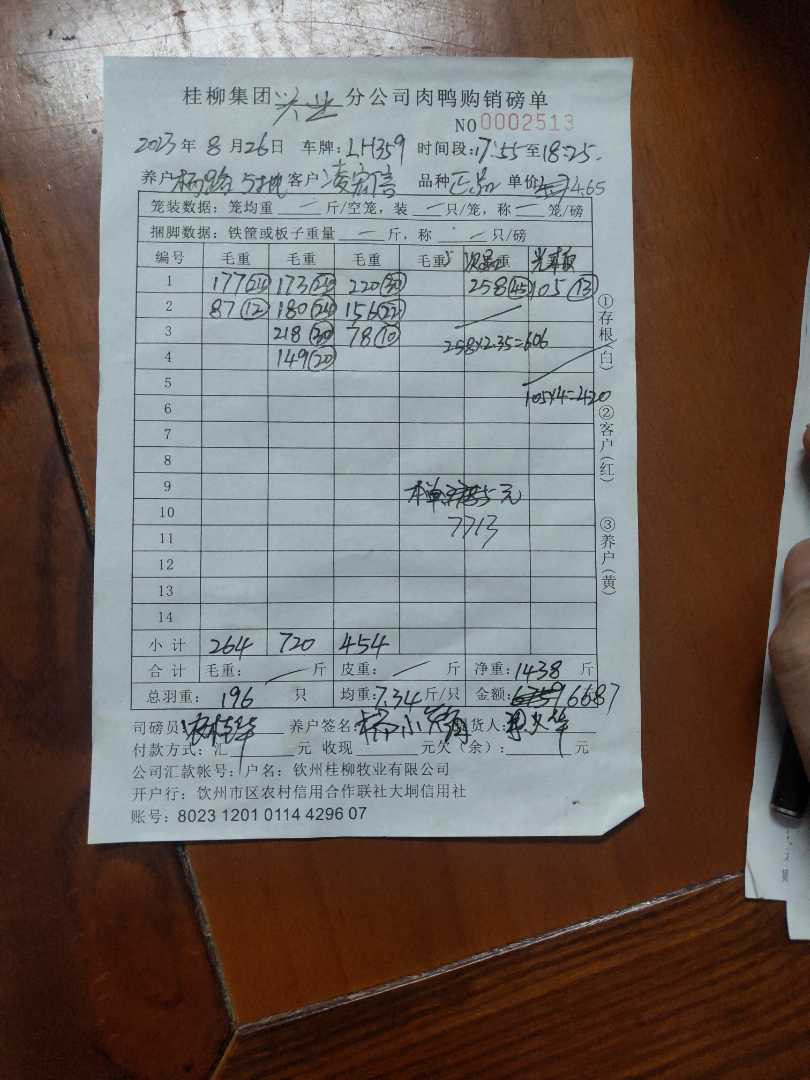 桂柳集团兴业分公司肉鸭购销磅单
NO 0002513
2023年8月26日 车牌:LH359 时间段:17:55至18:25.
养户 客户 品种正品 单价 4.65
笼装数据:笼均重 — 斤/空笼,装 — 只/笼,称 — 笼/磅
捆脚数据:铁筐或板子重量 — 斤,称 — 只/磅
编号 毛重 毛重 毛重 毛重 次品 重
1 177(24) 173(24) 220(30) 258(45) 105(13)
2 87(12) 180(24) 156(22)
3 218(30) 78(10) 258×2.35=606
4 149(20)
5 105×4=420
6
7
8
9 本单 5元
10 7713
11
12
13
14
小计 264 720 454
合计 毛重: 斤 皮重: 斤 净重:1438 斤
总羽重: 196 只 均重:7.34斤/只 金额: 6687
司磅员: 养户签名: 提货人:
付款方式:汇 元 收现 元欠(余): 元
公司汇款帐号:户名:钦州桂柳牧业有限公司
开户行:钦州市区农村信用合作联社大垌信用社
账号:8023 1201 0114 4296 07
①存根(白) ②客户(红) ③养户(黄)